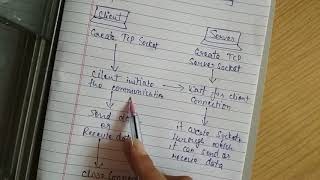 Client
Create TCP Socket
Client initiate
the communication
Send d
or
Receive da
Close Connec
Server
Create TCP
Server Socket
Wait for client
Connection
it create Socket
through which
it can send or
receive data